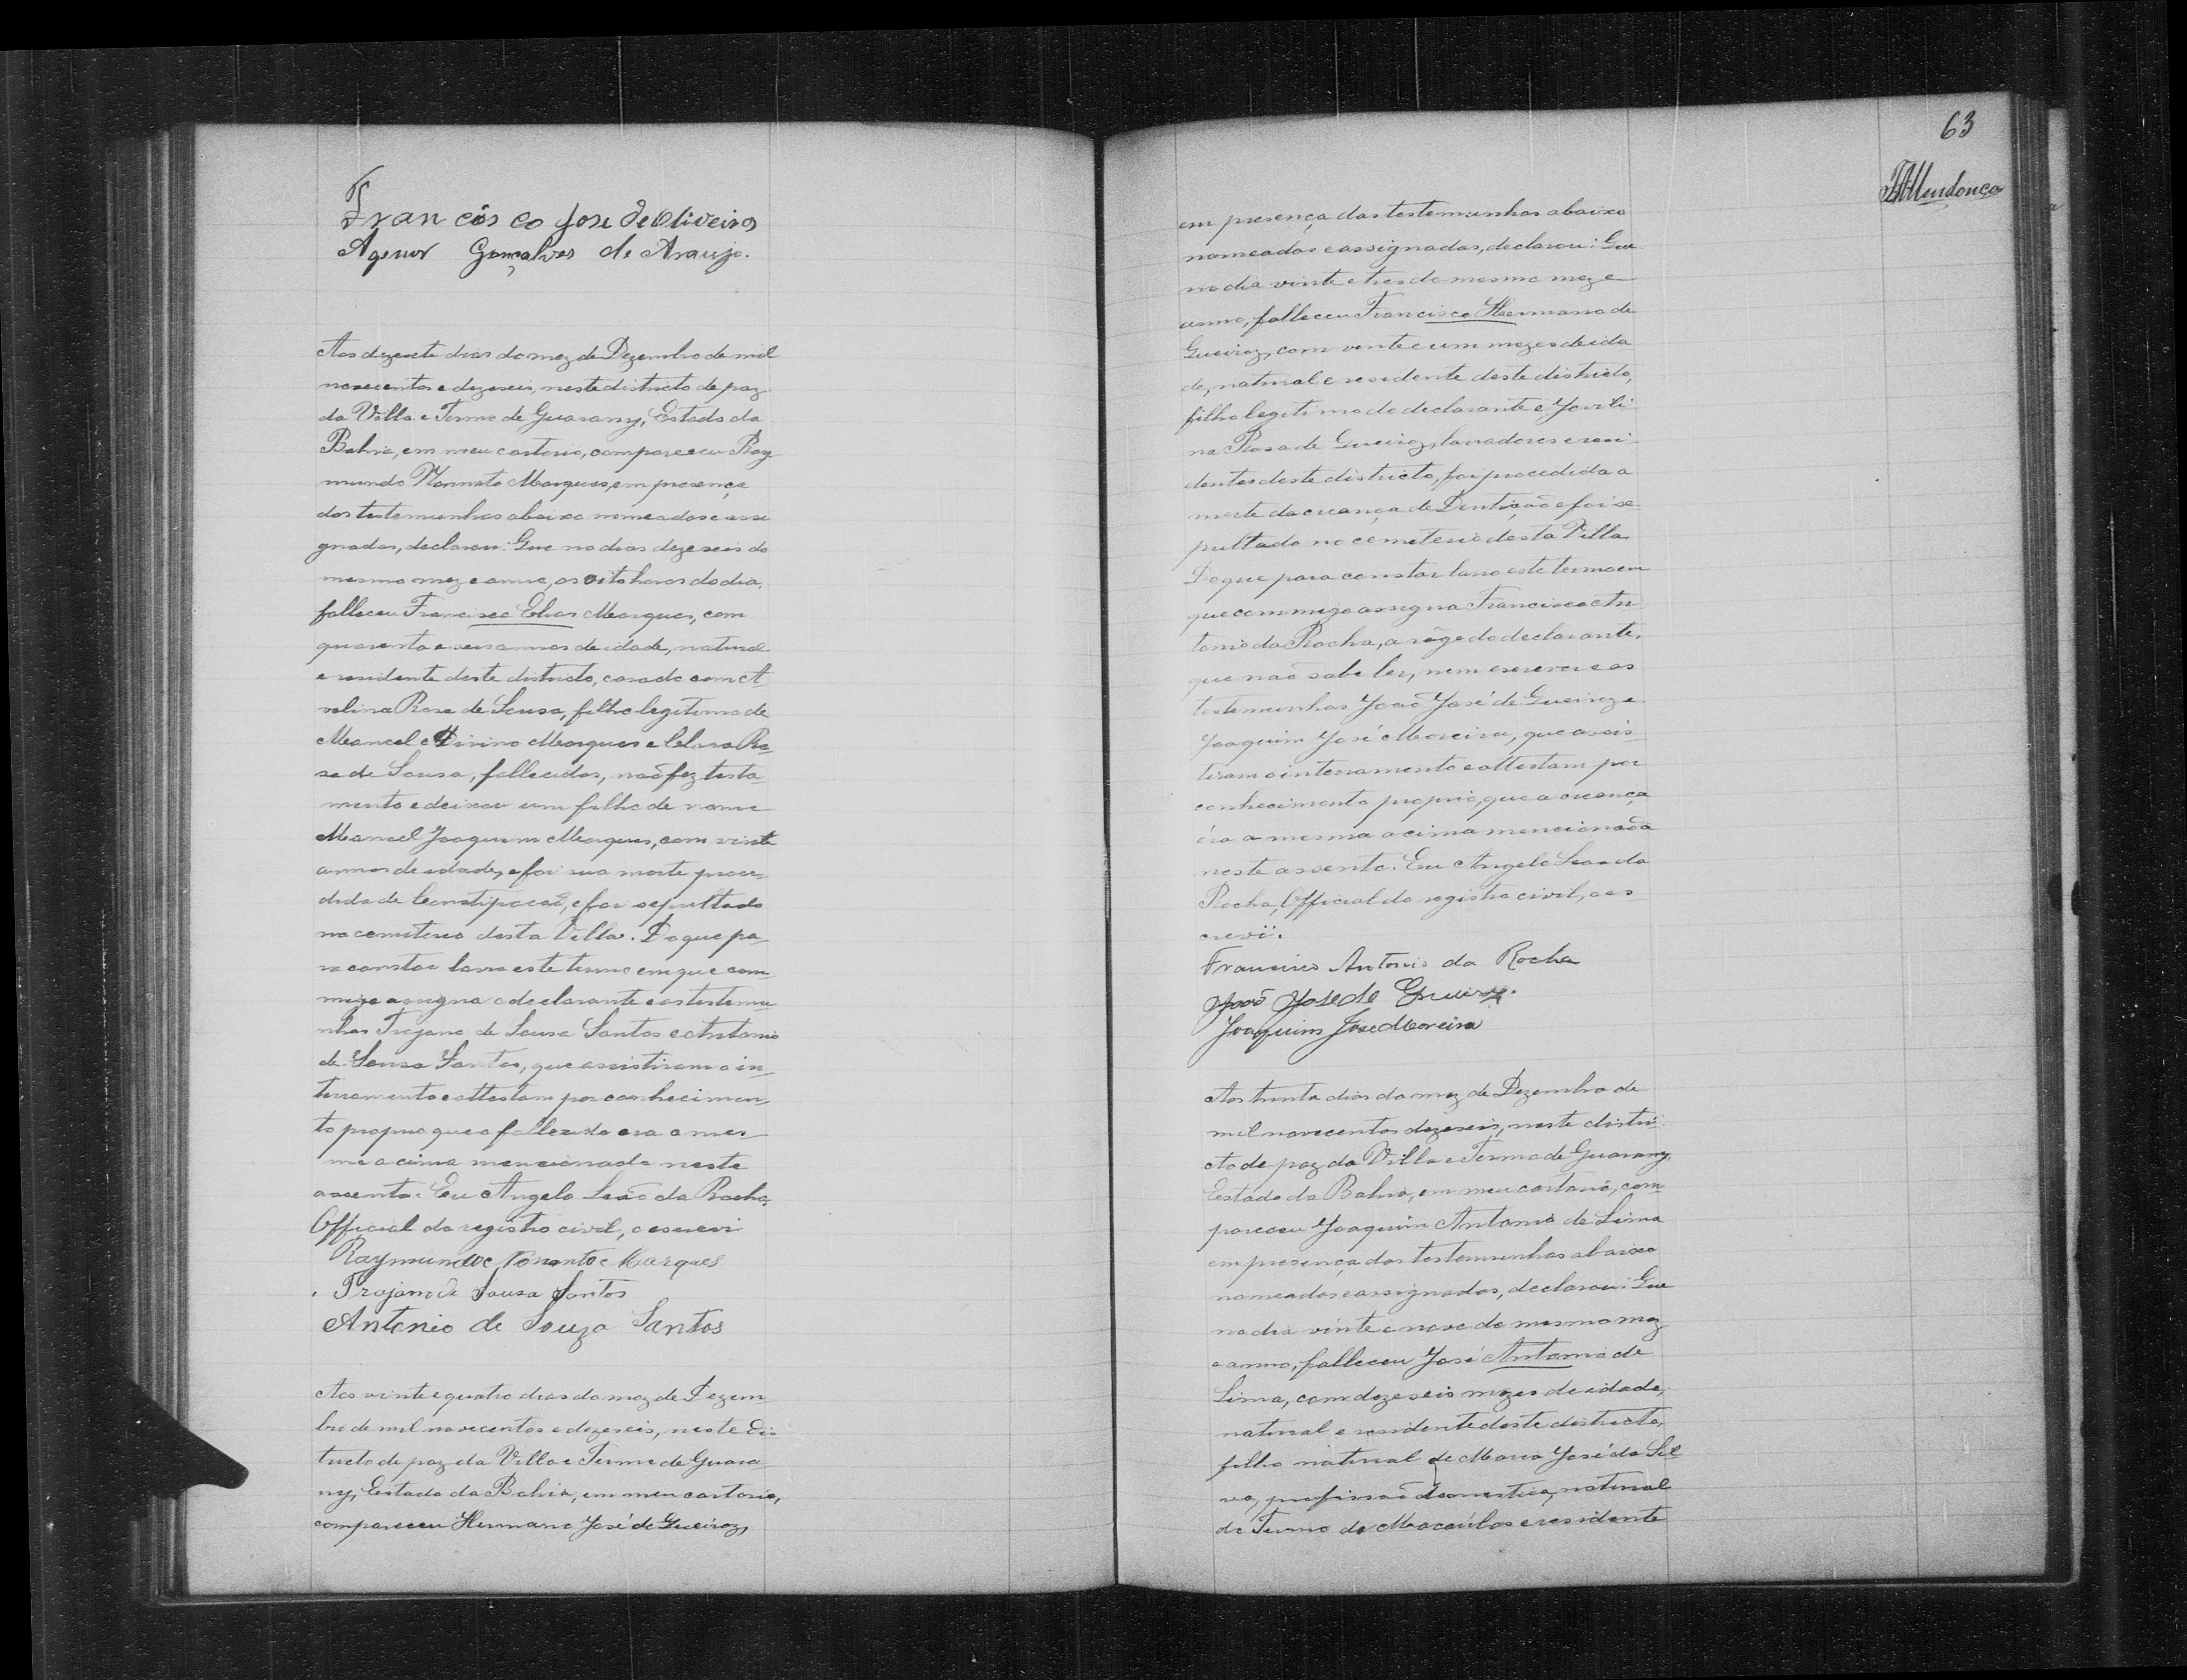 Francisco José de Oliveira
Agenor Gonçalves de Araujo.
Aos dezesete dias do mez de Dezembro de mil
novecentos e dezeseis, neste districto de paz
da Villa e Termo de Guarany, Estado da
Bahia, em meu cartorio, compareceu Ray
mundo Nonnato Marques, em presença
das testemunhas abaixo nomeadas e assi
gnadas, declarou: Que no dias dezeseis do
mesmo mez e anno, as oito horas do dia,
falleceu Francisco Elias Marques, com
quarenta e seis annos de idade, natural
e residente deste districto, casado com A
velina Rosa de Sousa, filho legitimo de
Manoel Marques e Clara Ro
sa de Sousa, fallecidos, não fez testa
mento e deixou um filho de nome
Manoel Joaquim Marques, com vinte
annos de idade, e foi sua morte proce-
dida de Constipação, e foi sepultado
no cemiterio desta Villa. Do que pa-
ra constar lavro este termo em que com
migo assigna o declarante e as testemu
nhas Trajano de Sousa Santos e Antonio
de Sousa Santos, que assistiram o in-
terramento e attestam por conhecimen-
to proprio que o fallecido era o mes
mo acima mencionado neste
assento. Eu Angelo Leão da Rocha,
Official do registro civil, o escrevi
Raymundo Nonnato Marques
Trajano de Sousa Santos
Antonio de Souza Santos
Aos vinte e quatro dias do mez de Dezem
bro de mil novecentos e dezeseis, neste dis
tricto de paz da Villa e Termo de Guara
ny, Estado da Bahia, em meu cartorio,
compareceu Hermano José de Queiroz,
63
Mendonça
em presença das testemunhas abaixo
nomeadas e assignadas, declarou: Que
no dia vinte e tres do mesmo mez e
anno, falleceu Francisco Hermano de
Queiroz, com vinte e um mezes de ida
de, natural e residente deste districto,
filho legitimo do declarante e Jovili
na Rosa de Queiroz, lavradores e resi
dentes deste districto, foi procedida a
morte da creança de Dentição e foi se
pultado no cemiterio desta Villa
Do que para constar lavro este termo em
que commigo assigna Francisco An
tonio da Rocha, a rôgo do declarante,
que não sabe ler, nem escrever e as
testemunhas João José de Queiroz e
Joaquim José Moreira, que assis
tiram o interramento e attestam por
conhecimento proprio, que a creança
éra a mesma acima mencionada
neste assento. Eu Angelo Leão da
Rocha, Official do registro civil, o es
crevi.
Francisco Antonio da Rocha
João José de Queiroz.
Joaquim José Moreira
Aos trinta dias do mez de Dezembro de
mil novecentos dezeseis, neste distri
cto de paz da Villa e Termo de Guarany,
Estado da Bahia, em meu cartorio, com
pareceu Joaquim Antonio de Lima
em presença das testemunhas abaixo
nomeadas e assignadas, declarou: Que
no dia vinte e nove do mesmo mez
e anno, falleceu José Antonio de
Lima, com dezeseis mezes de idade,
natural e residente deste districto,
filho natural de Maria José da Sil
va, profissão domestica, natural
do Termo de Macaúbas e residente